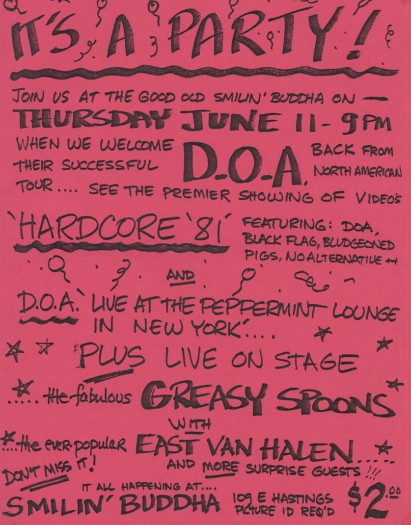 IT'S A PARTY!
JOIN US AT THE GOOD OLD SMILIN' BUDDHA ON —
THURSDAY JUNE 11 - 9 PM
WHEN WE WELCOME D.O.A. BACK FROM
THEIR SUCCESSFUL NORTH AMERICAN
TOUR .... SEE THE PREMIER SHOWING OF VIDEO'S
'HARDCORE '81' FEATURING: DOA,
BLACK FLAG, BLUDGEONED
PIGS, NO ALTERNATIVE ++
AND
D.O.A. 'LIVE AT THE PEPPERMINT LOUNGE
IN NEW YORK'....
PLUS LIVE ON STAGE
..... the fabulous GREASY SPOONS
WITH
....the ever-popular EAST VAN HALEN.....
DON'T MISS IT! AND MORE SURPRISE GUESTS!!!
IT ALL HAPPENING AT....
SMILIN' BUDDHA 109 E HASTINGS $2.00
PICTURE ID REQ'D